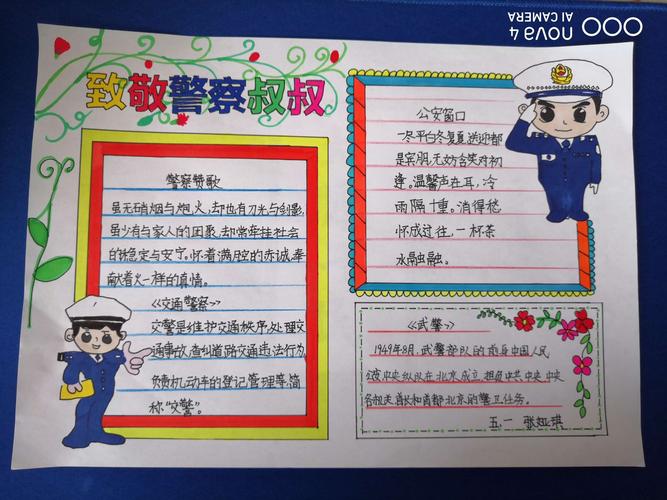 致敬警察叔叔
警察赞歌
虽无硝烟与炮火,却也有刀光与剑影,
虽少有与家人的团聚,却常牵挂社会
的稳定与安宁。怀着满腔的赤诚,奉
献着火一样的真情。
《交通警察》
交警是维护交通秩序,处理交
通事故,查纠道路交通违法行为,
负责机动车的登记管理等,简
称“交警”。
公安窗口
一冬平白冬复夏,送迎都
是宾朋,无妨含笑对初
逢。温馨声在耳,冷
雨隔十重。消得愁
怀成过往,一杯茶
水融融。
《武警》
1949年8月,武警部队的前身中国人民
公安中央纵队在北京成立,担负中共中央,中央
各机关,首长和首都北京的警卫任务。
五.一 张娅琪
nova 4
AI CAMERA